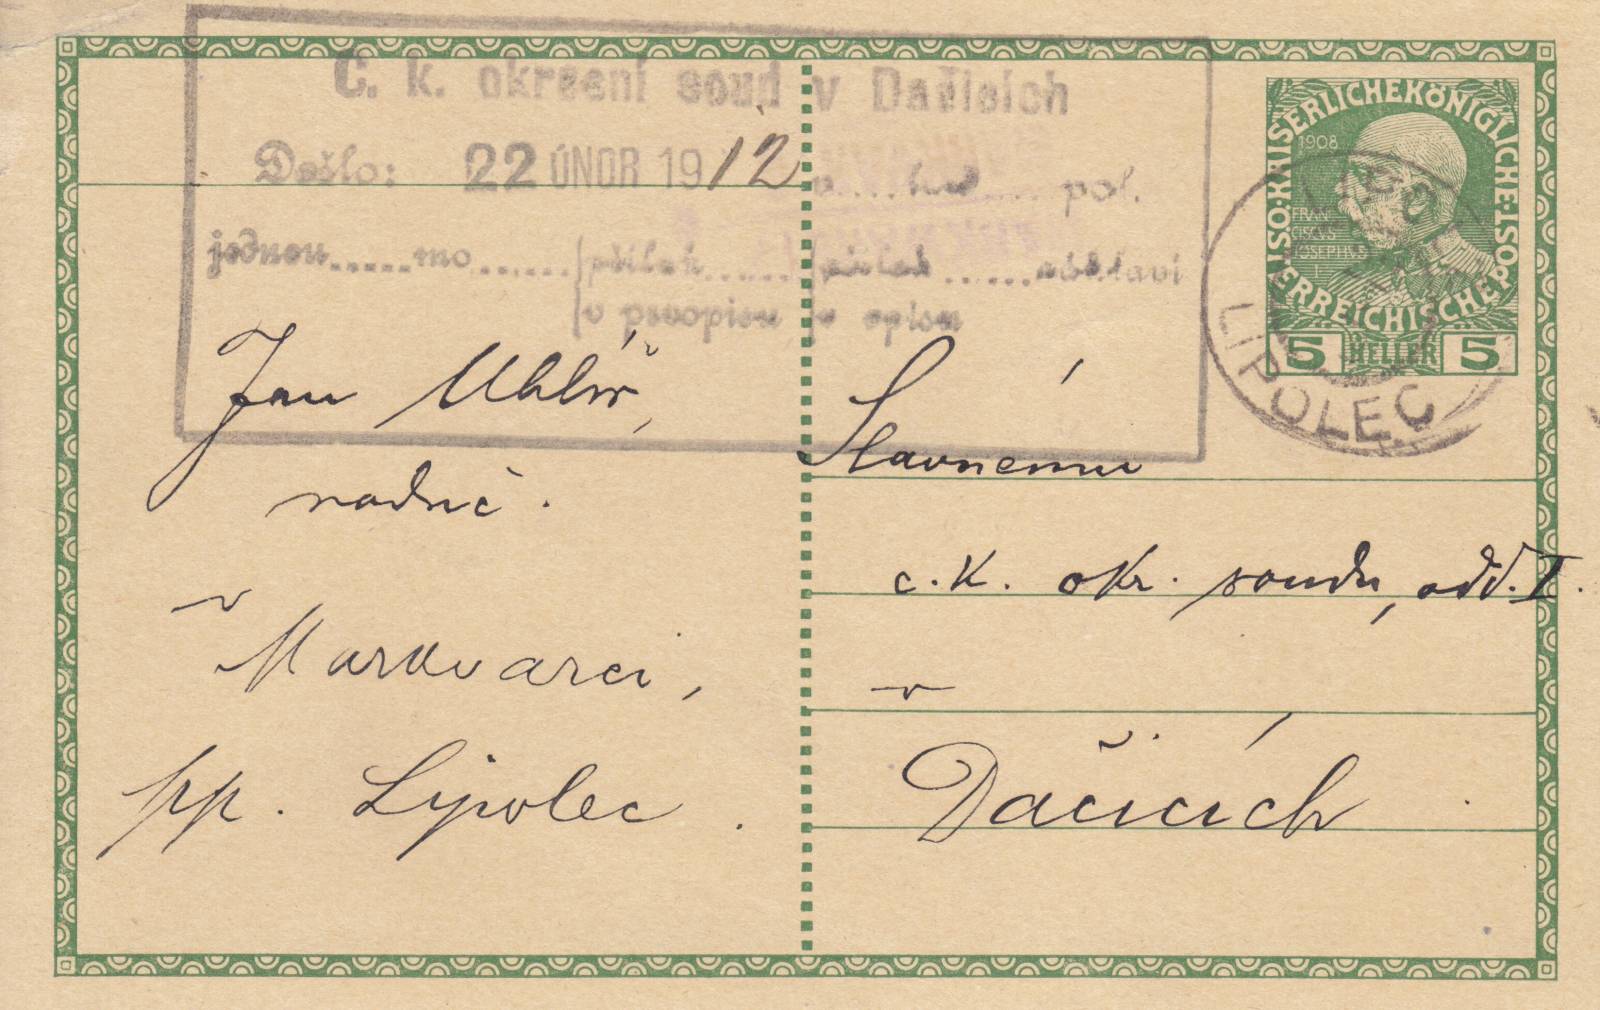 C. k. okresní soud v Dačicích
Došlo: 22 ÚNOR 1912 hod pol.
jednou mo příloh
v prvopisu
KAISERLICHEKÖNIGLICHE
ÖSTERREICHISCHEPOST
1908
FRAN
CISCVS
JOSEPHVS
I
5 HELLER 5
LIPOLEC
Jan Uhlíř,
radní.
v
Markvarci,
pp. Lipolec.
Slavnému
c. k. okr. soudu, odd. I.
v
Dačicích